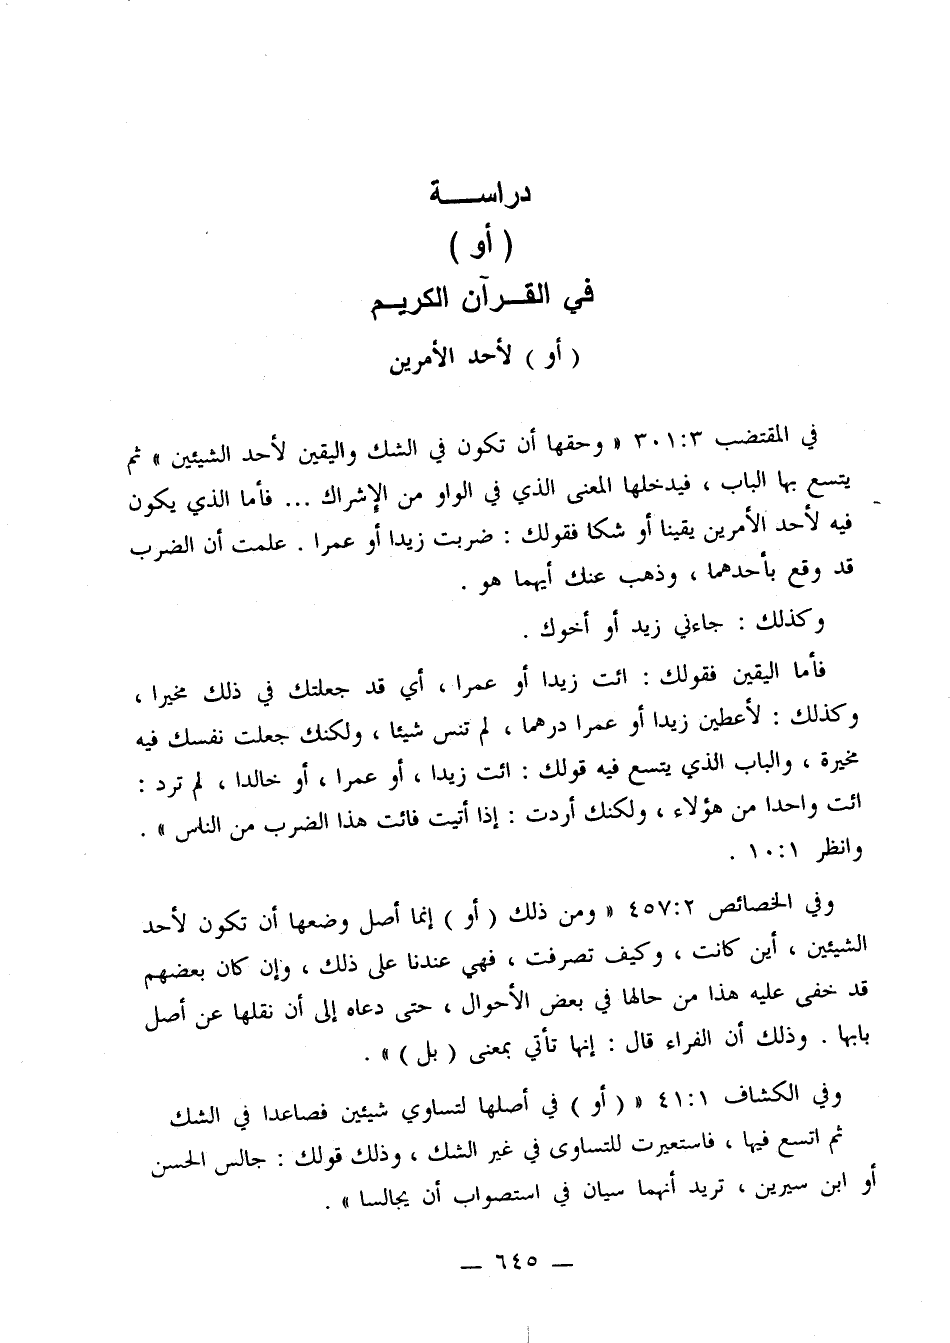 دراســـة
( أو )
في القــرآن الكريــم
( أو ) لأحد الأمرين
في المقتضب ٣٠١:٣ « وحقها أن تكون في الشك واليقين لأحد الشيئين » ثم
يتسع بها الباب ، فيدخلها المعنى الذي في الواو من الإشراك ... فأما الذي يكون
فيه لأحد الأمرين يقينا أو شكا فقولك : ضربت زيدا أو عمرا . علمت أن الضرب
قد وقع بأحدهما ، وذهب عنك أيهما هو .
وكذلك : جاءني زيد أو أخوك .
فأما اليقين فقولك : ائت زيدا أو عمرا ، أي قد جعلتك في ذلك مخيرا ،
وكذلك : لأعطين زيدا أو عمرا درهما ، لم تنس شيئا ، ولكنك جعلت نفسك فيه
مخيرة ، والباب الذي يتسع فيه قولك : ائت زيدا ، أو عمرا ، أو خالدا ، لم ترد :
ائت واحدا من هؤلاء ، ولكنك أردت : إذا أتيت فائت هذا الضرب من الناس » .
وانظر ١٠:١ .
وفي الخصائص ٤٥٧:٢ « ومن ذلك ( أو ) إنما أصل وضعها أن تكون لأحد
الشيئين ، أين كانت ، وكيف تصرفت ، فهي عندنا على ذلك ، وإن كان بعضهم
قد خفى عليه هذا من حالها في بعض الأحوال ، حتى دعاه إلى أن نقلها عن أصل
بابها . وذلك أن الفراء قال : إنها تأتي بمعنى ( بل ) » .
وفي الكشاف ٤١:١ « ( أو ) في أصلها لتساوي شيئين فصاعدا في الشك
ثم اتسع فيها ، فاستعيرت للتساوى في غير الشك ، وذلك قولك : جالس الحسن
أو ابن سيرين ، تريد أنهما سيان في استصواب أن يجالسا » .
— ٦٤٥ —